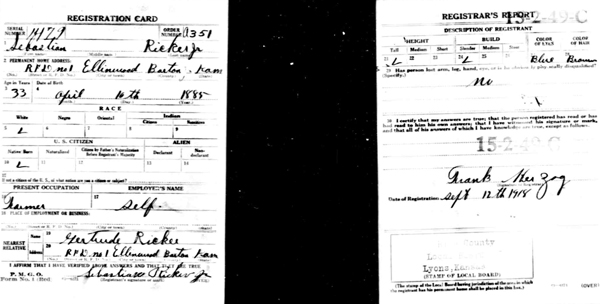 REGISTRATION CARD
SERIAL NUMBER 1179
ORDER NUMBER A351
Sebastian Ricker Jr
2 PERMANENT HOME ADDRESS:
RFD. no 1 Ellenwood Barton Kan
Age in Years
Date of Birth
33 April 10th 1885
RACE
White
Negro
Oriental
Indian
Citizen
Noncitizen
5
6
7
8
9
U. S. CITIZEN
ALIEN
Native Born
Naturalized
Citizen by Father's Naturalization Before Registrant's Majority
Declarant
Non-declarant
10
11
12
13
14
15
If not a citizen of the U. S., of what nation are you a citizen or subject?
PRESENT OCCUPATION
EMPLOYER'S NAME
Farmer
Self
18 PLACE OF EMPLOYMENT OR BUSINESS:
NEAREST RELATIVE
Name
19
Gertrude Ricker
Address
20
RFD. no 1 Ellenwood Barton Kan
I AFFIRM THAT I HAVE VERIFIED ABOVE ANSWERS AND THAT THEY ARE TRUE
P. M. G. O.
Form No. 1 (Red)
Sebastian Ricker Jr
(Registrant's signature or mark)
REGISTRAR'S REPORT
15-2-49-C
DESCRIPTION OF REGISTRANT
HEIGHT
BUILD
COLOR OF EYES
COLOR OF HAIR
Tall
Medium
Short
Slender
Medium
Stout
21
22
23
24
25
26
27
28
Blue
Brown
29 Has person lost arm, leg, hand,
(Specify.)
no
30 I certify that my answers are true; that the person registered has read or has had read to him his own answers; that I have witnessed his signature or mark, and that all of his answers of which I have knowledge are true, except as follows:
15-2-49-C
Frank Herzog
Date of Registration Sept 12th 1918
County
Lyons, Kansas
(STAMP OF LOCAL BOARD)
(The stamp of the Local Board having jurisdiction of the area in which the registrant has his permanent home shall be placed in this box.)
(OVER)